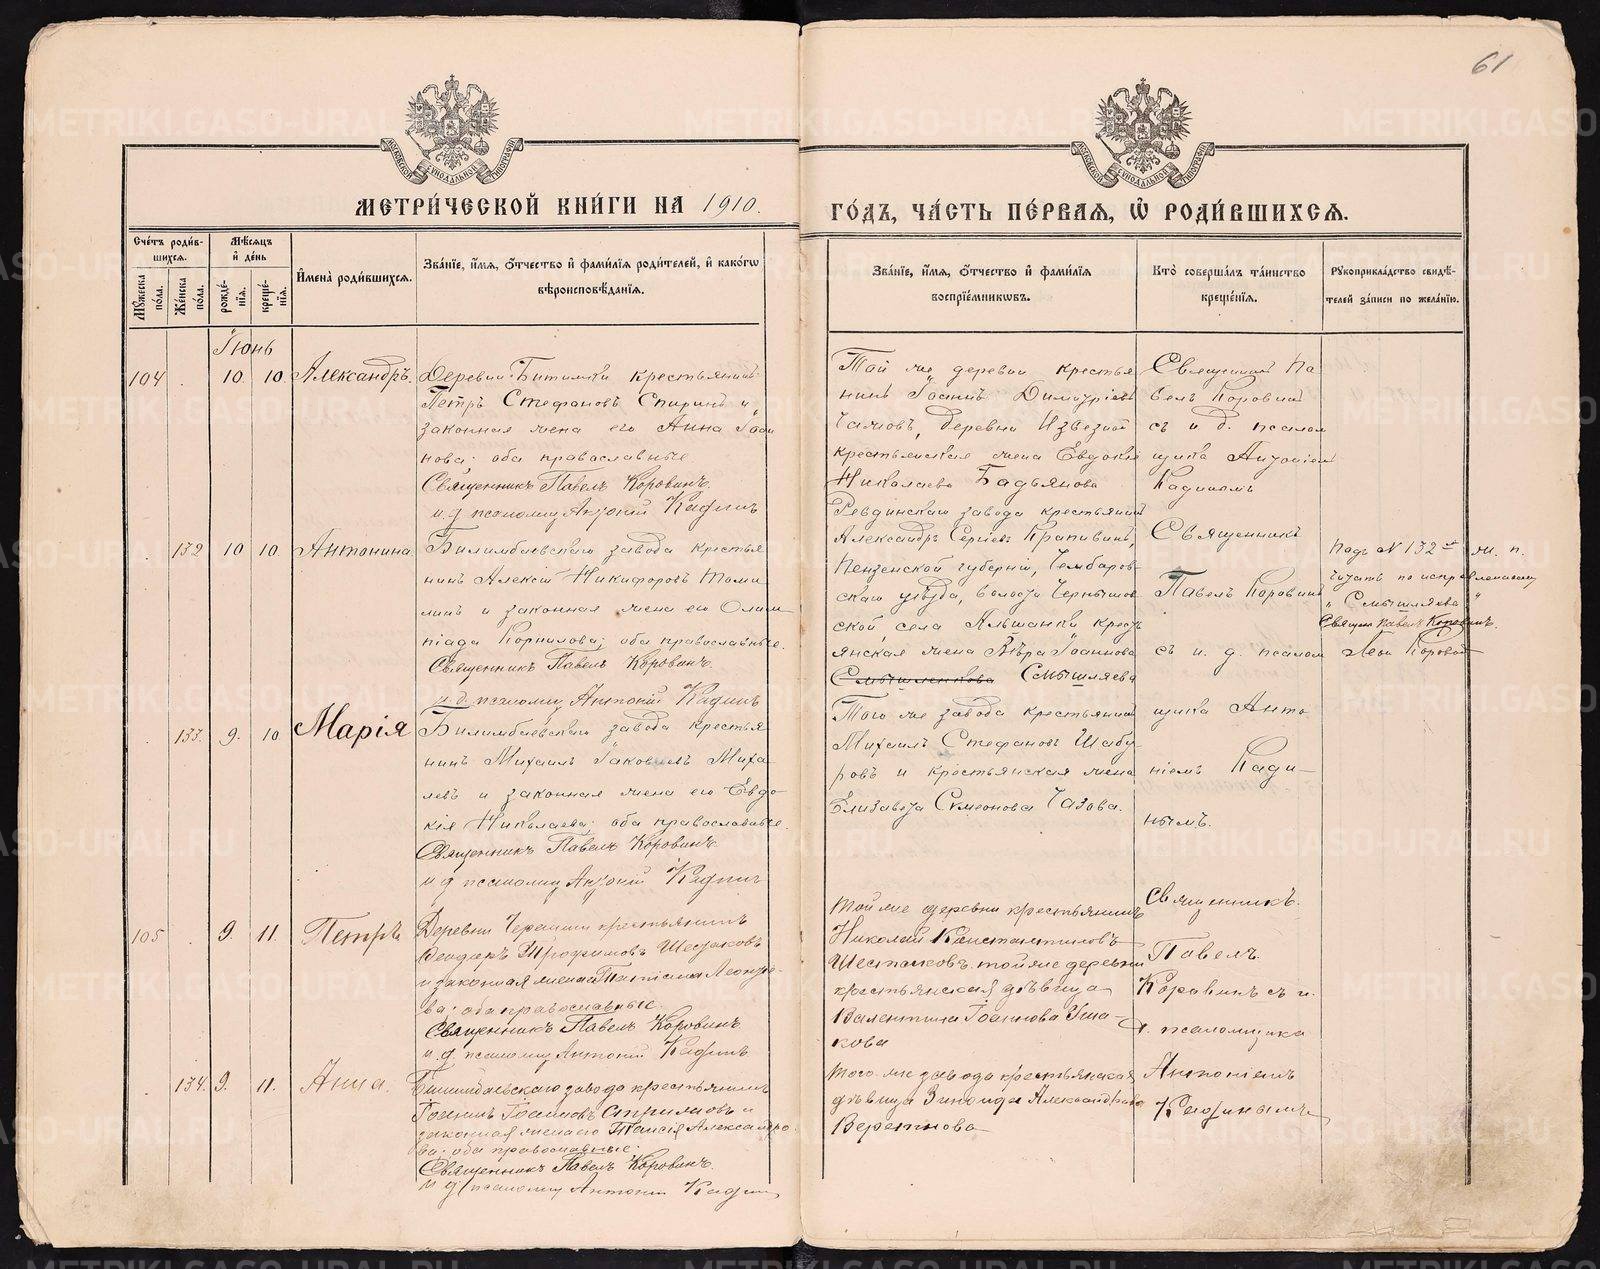 61
МОСКОВСКОЙ СѴНОДАЛЬНОЙ ТИПОГРАФІИ
МОСКОВСКОЙ СѴНОДАЛЬНОЙ ТИПОГРАФІИ
МЕТРИ́ЧЕСКОЙ КНИ́ГИ НА 1910.
ГО́ДЪ, ЧА́СТЬ ПЕ́РВАЯ, Ѡ҆ РОДИ́ВШИХСЯ.
Сче́тъ роди́в-
шихся.
Мꙋжеска по́ла.
Же́нска по́ла.
Мѣ́сяцъ
и҆ де́нь
рожде́-
нїя.
креще́-
нїя.
И҆мена̀ роди́вшихся.
Зва́нїе, и҆́мя, ѻ҆́тчество и҆ фами́лїя роди́телей, и҆ како́гѡ
вѣроисповѣ́данїя.
Зва́нїе, и҆́мя, ѻ҆́тчество и҆ фами́лїя
воспрїе́мникѡвъ.
Кто̀ соверша́лъ та́инство
креще́нїя.
Рꙋкоприкла́дство свидѣ́-
телей за́писи по жела́нїю.
Іюнь
104 10. 10. Александръ.
Деревни Битимки крестьянинъ
Петръ Стефановъ Спиринъ и
законная жена его Анна Іоан
нова: оба православные
Священникъ Павелъ Коровинъ.
и. д. псаломщ. Антоній Кадинъ
Той же деревни крестья
нинъ Іоаннъ Димитріевъ
Чамовъ, деревни Извезной
крестьянская жена Евдокія
Николаева Бадьянова
Священникъ Па
велъ Коровинъ
съ и. д. псалом
щика Антоніем
Кадинымъ
132 10 10. Антонина
Билимбаевскаго завода крестья
нинъ Алексій Никифоровъ Томи
линъ и законная жена его Олим
піада Корнилова; оба православные.
Священникъ Павелъ Коровинъ.
и. д. псаломщ. Антоній Кадинъ
Ревдинскаго завода крестьянинъ
Александръ Сергіевъ Крапивинъ,
Пензенской губерніи, Чембаров
скаго уѣзда, волости Чернышов
ской, села Альшанки крест
янская жена Вѣра Іоаннова
Смышленкова Смышляева
Священникъ
Павелъ Коровинъ
съ и. д. псалом
Подъ № 132 ж. п.
читать по исправленному
„Смышляева“
Священ. Павелъ Коровинъ.
133. 9. 10 Марія
Билимбаевскаго завода крестья
нинъ Михаилъ Іаковлевъ Миха
левъ и законная жена его Евдо
кія Николаева; оба православные.
Священникъ Павелъ Коровинъ.
и. д. псаломщ. Антоній Кадинъ
Того же завода крестьянинъ
Михаилъ Стефановъ Шабу
ровъ и крестьянская жена
Елизавета Симеонова Чазова.
щика Анто
ніемъ Кади-
нымъ.
105 9. 11. Петръ
Деревни Черемши крестьянинъ
Ѳеодоръ Трофимовъ Шестаковъ
и законная жена Таисія Леонтье-
ва; оба православные.
Священникъ Павелъ Коровинъ
и. д. псаломщ. Антоній Кадинъ
той же деревни крестьянинъ
Николай Константиновъ
Шестаковъ, той же деревни
крестьянская дѣвица
Валентина Іоаннова Уша-
кова
Священникъ.
Павелъ.
Коровинъ съ и.
д. псаломщика
134. 9. 11. Анна.
Билимбаевскаго завода крестьянинъ
Іоаннъ Іоанновъ и
законная жена его Таисія Александро
ва; оба православные:
Священникъ Павелъ Коровинъ.
и. д. псаломщ. Антоній Кадинъ
того же завода крестьянская
дѣвица Зинаида Александрова
Веретнова
Антоніемъ
Кадинымъ